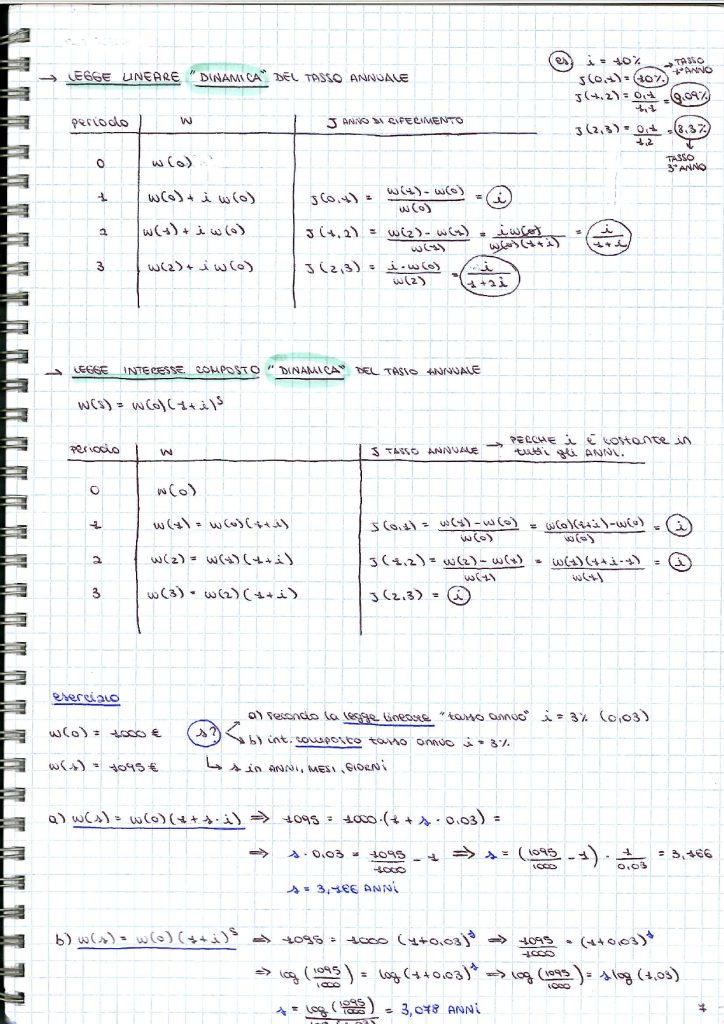 es) i = 10% → TASSO 1° ANNO
J(0,1) = 10%
J(1,2) = 0,1/1,1 = 9,09%
J(2,3) = 0,1/1,2 = 8,3%
↓
TASSO 3° ANNO
→ LEGGE LINEARE "DINAMICA" DEL TASSO ANNUALE
periodo W J ANNO DI RIFERIMENTO
0 W(0)
1 W(0) + i W(0) J(0,1) = W(1) - W(0)/W(0) = i
2 W(1) + i W(0) J(1,2) = W(2) - W(1)/W(1) = i W(0)/W(0)(1+i) = i/1+i
3 W(2) + i W(0) J(2,3) = i·W(0)/W(2) = i/1+2i
→ LEGGE INTERESSE COMPOSTO "DINAMICA" DEL TASSO ANNUALE
W(s) = W(0)(1+i)^s
periodo W J TASSO ANNUALE → PERCHE i è costante in tutti gli ANNI.
0 W(0)
1 W(1) = W(0)(1+i) J(0,1) = W(1) - W(0)/W(0) = W(0)(1+i) - W(0)/W(0) = i
2 W(2) = W(1)(1+i) J(1,2) = W(2) - W(1)/W(1) = W(1)(1+i-1)/W(1) = i
3 W(3) = W(2)(1+i) J(2,3) = i
esercizio
W(0) = 1000 € s? a) secondo la legge lineare "tasso annuo" i = 3% (0,03)
b) int. composto tasso annuo i = 3%
W(s) = 1095 € ↳ s in ANNI, MESI, GIORNI
a) W(s) = W(0)(1 + s·i) ⇒ 1095 = 1000·(1 + s·0,03) =
⇒ s·0,03 = 1095/1000 - 1 ⇒ s = (1095/1000 - 1) · 1/0,03 = 3,166
s = 3,166 ANNI
b) W(s) = W(0)(1+i)^s ⇒ 1095 = 1000 (1+0,03)^s ⇒ 1095/1000 = (1+0,03)^s
⇒ log(1095/1000) = log(1+0,03)^s ⇒ log(1095/1000) = s log(1,03)
s = log(1095/1000)/log(1,03) = 3,078 ANNI
7